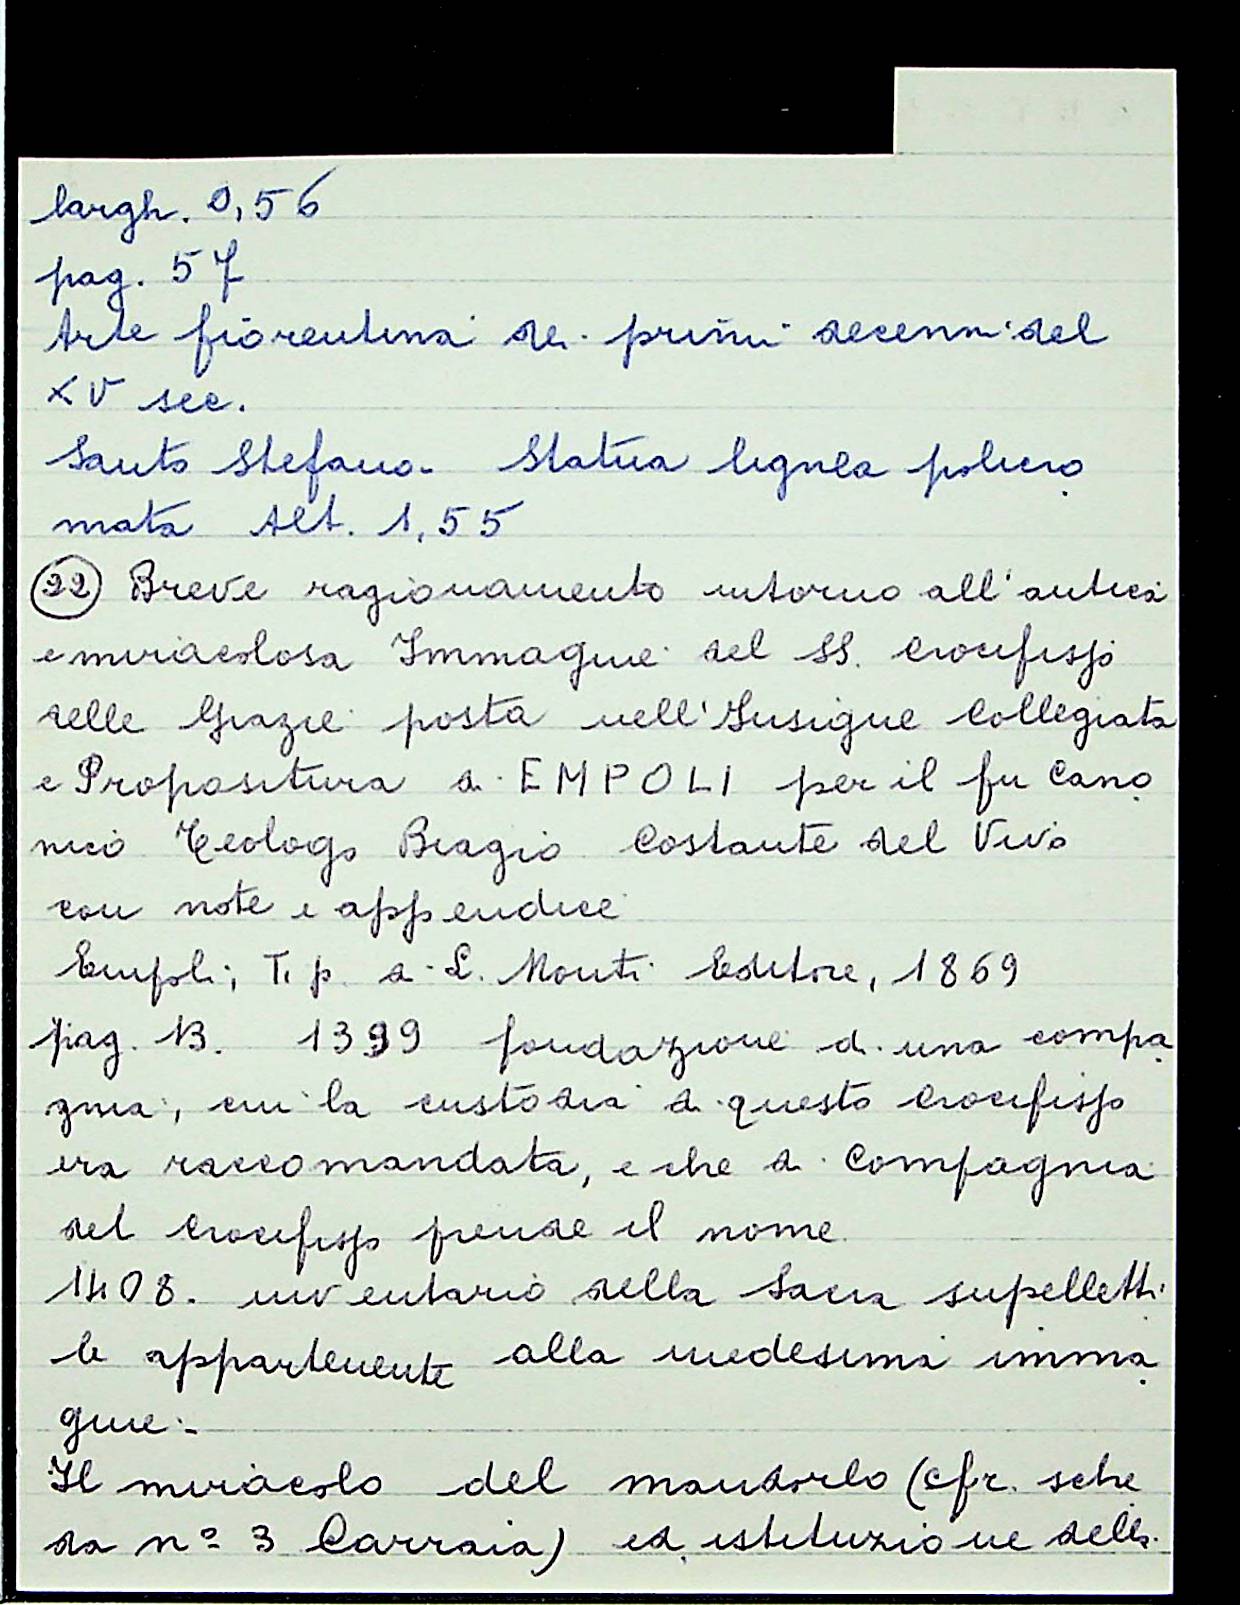 largh. 0,56
pag. 57
Arte fiorentina dei primi decenni del
XV sec.
Santo Stefano - Statua lignea policro
mata Alt. 1,55
22 Breve ragionamento intorno all'antica
e miracolosa Immagine del SS. Crocifisso
delle Grazie posta nell'Insigne Collegiata
e Propositura di EMPOLI per il fu Cano
nico Teologo Biagio Costante del Vivo
con note e appendice
Empoli; Tip. di L. Monti Editore, 1869
pag. 13. 1399 fondazione di una compa
gnia, cui la custodia di questo Crocifisso
era raccomandata, e che di Compagnia
del Crocifisso prende il nome.
1408. inventario della Sacra supelletti
le appartenente alla medesima imma
gine.-
Il miracolo del mandorlo (cfr. sche
da nº 3 Carraia) ed istituzione della